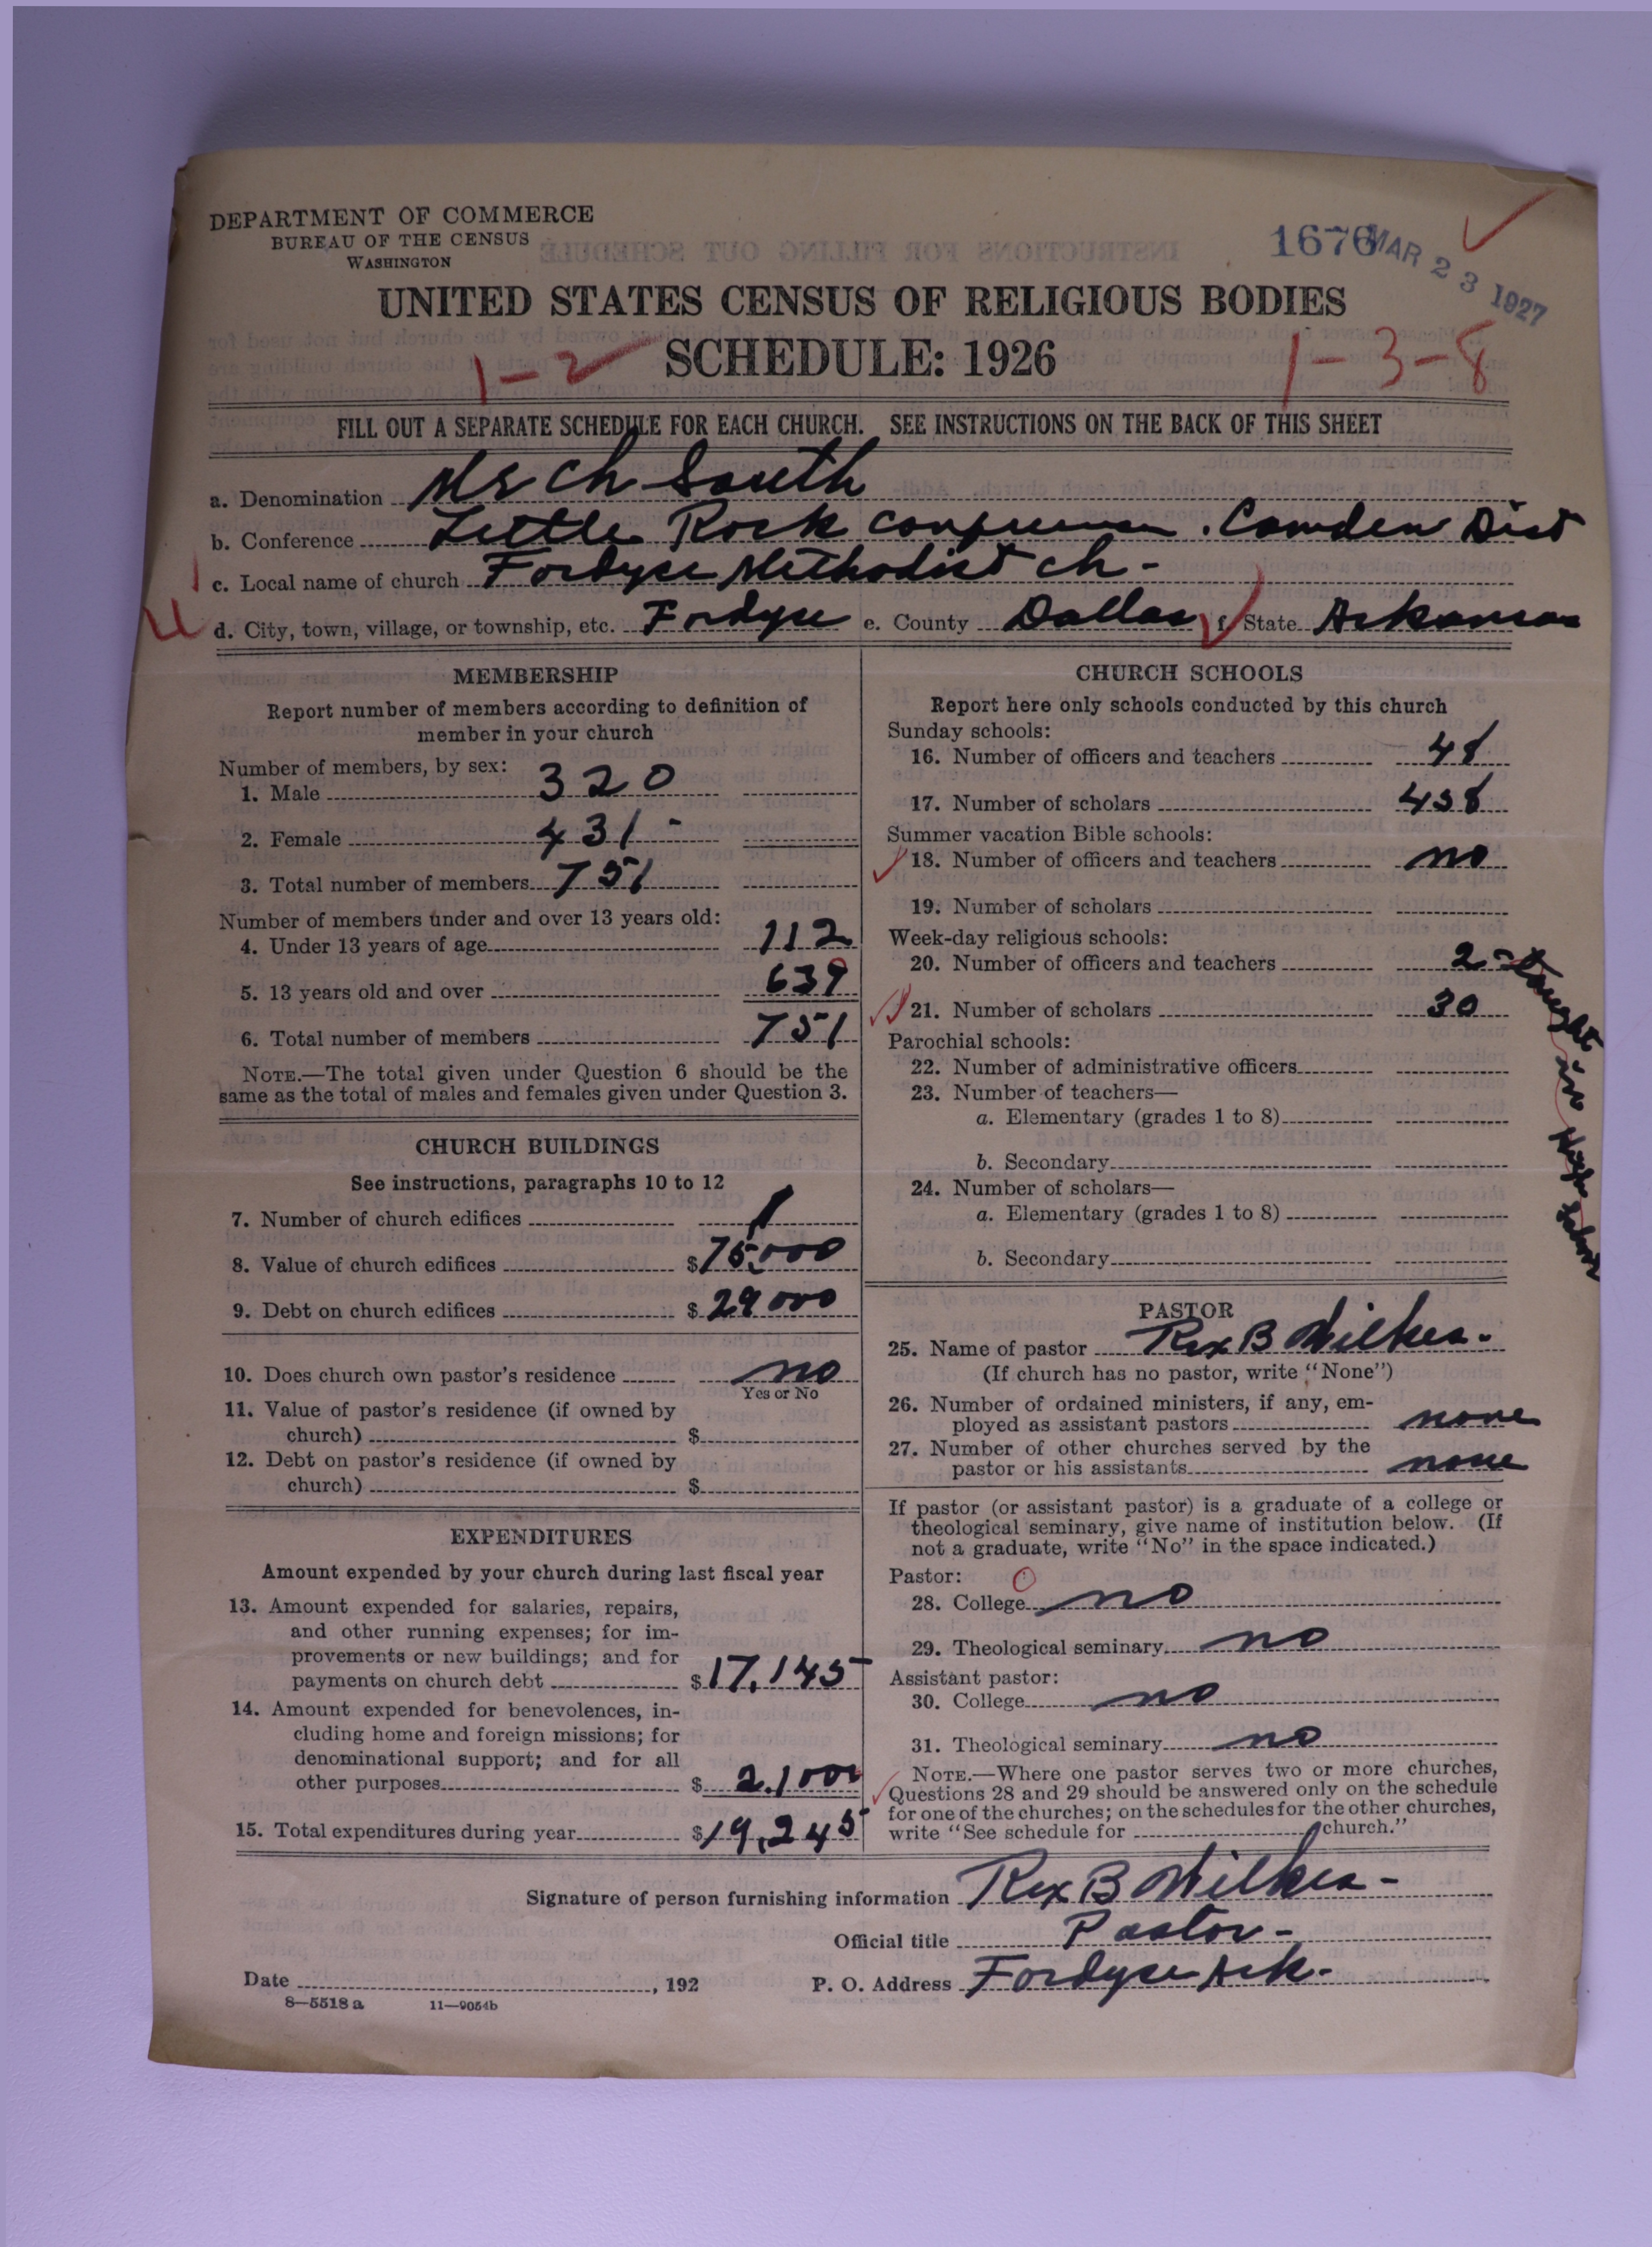 DEPARTMENT OF COMMERCE
BUREAU OF THE CENSUS
WASHINGTON
1676
MAR 23 1927
UNITED STATES CENSUS OF RELIGIOUS BODIES
1-2 SCHEDULE: 1926 1-3-8
FILL OUT A SEPARATE SCHEDULE FOR EACH CHURCH. SEE INSTRUCTIONS ON THE BACK OF THIS SHEET
a. Denomination Ch South
b. Conference Little Rock Conference. Camden Dist
c. Local name of church Fordyce Methodist Ch-
d. City, town, village, or township, etc. Fordyce e. County Dallas f. State Arkansas
MEMBERSHIP
Report number of members according to definition of
member in your church
Number of members, by sex:
1. Male 320
2. Female 431-
3. Total number of members 751
Number of members under and over 13 years old:
4. Under 13 years of age 112
5. 13 years old and over 639
6. Total number of members 751
NOTE.—The total given under Question 6 should be the
same as the total of males and females given under Question 3.
CHURCH BUILDINGS
See instructions, paragraphs 10 to 12
7. Number of church edifices 1
8. Value of church edifices $75,000
9. Debt on church edifices $29000
10. Does church own pastor's residence no
Yes or No
11. Value of pastor's residence (if owned by
church) $
12. Debt on pastor's residence (if owned by
church) $
EXPENDITURES
Amount expended by your church during last fiscal year
13. Amount expended for salaries, repairs,
and other running expenses; for im-
provements or new buildings; and for
payments on church debt $17,145
14. Amount expended for benevolences, in-
cluding home and foreign missions; for
denominational support; and for all
other purposes $
15. Total expenditures during year $19,245
CHURCH SCHOOLS
Report here only schools conducted by this church
Sunday schools:
16. Number of officers and teachers 48
17. Number of scholars 458
Summer vacation Bible schools:
18. Number of officers and teachers no
19. Number of scholars
Week-day religious schools:
20. Number of officers and teachers 2- taught in High School
21. Number of scholars 30
Parochial schools:
22. Number of administrative officers
23. Number of teachers—
a. Elementary (grades 1 to 8)
b. Secondary
24. Number of scholars—
a. Elementary (grades 1 to 8)
b. Secondary
PASTOR
25. Name of pastor Rex B Wilkes-
(If church has no pastor, write "None")
26. Number of ordained ministers, if any, em-
ployed as assistant pastors none
27. Number of other churches served by the
pastor or his assistants none
If pastor (or assistant pastor) is a graduate of a college or
theological seminary, give name of institution below. (If
not a graduate, write "No" in the space indicated.)
Pastor:
28. College no
29. Theological seminary no
Assistant pastor:
30. College no
31. Theological seminary no
NOTE.—Where one pastor serves two or more churches,
Questions 28 and 29 should be answered only on the schedule
for one of the churches; on the schedules for the other churches,
write "See schedule for church."
Signature of person furnishing information Rex B Wilkes-
Official title Pastor-
Date , 192 P. O. Address Fordyce Ark-
8—5518 a 11—9054b